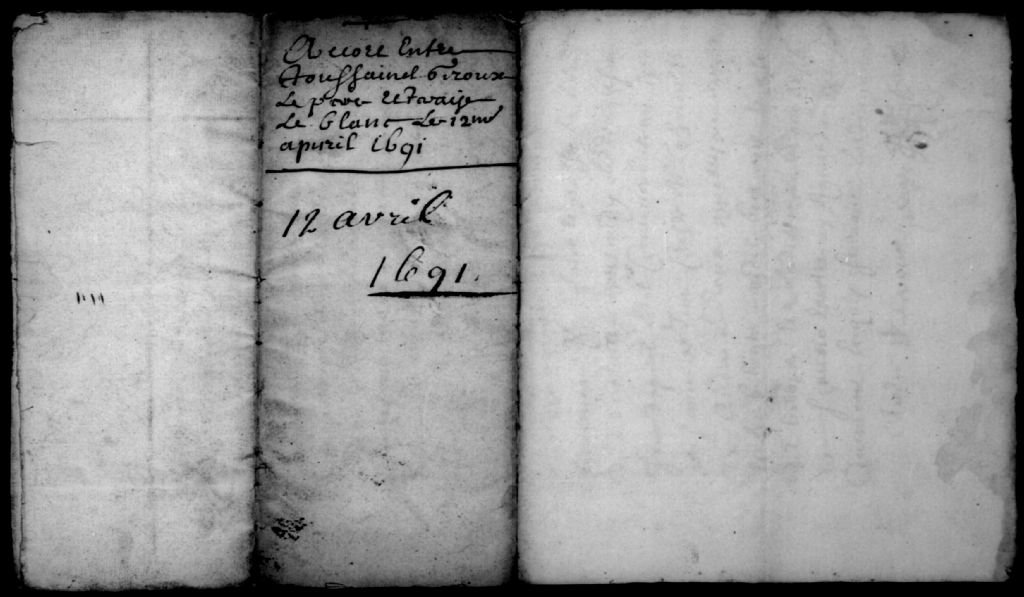 Accort Entre
toussainct Giroux
Le pere et
Le blanc Le 12me
apvril 1691
12 avril
1691.